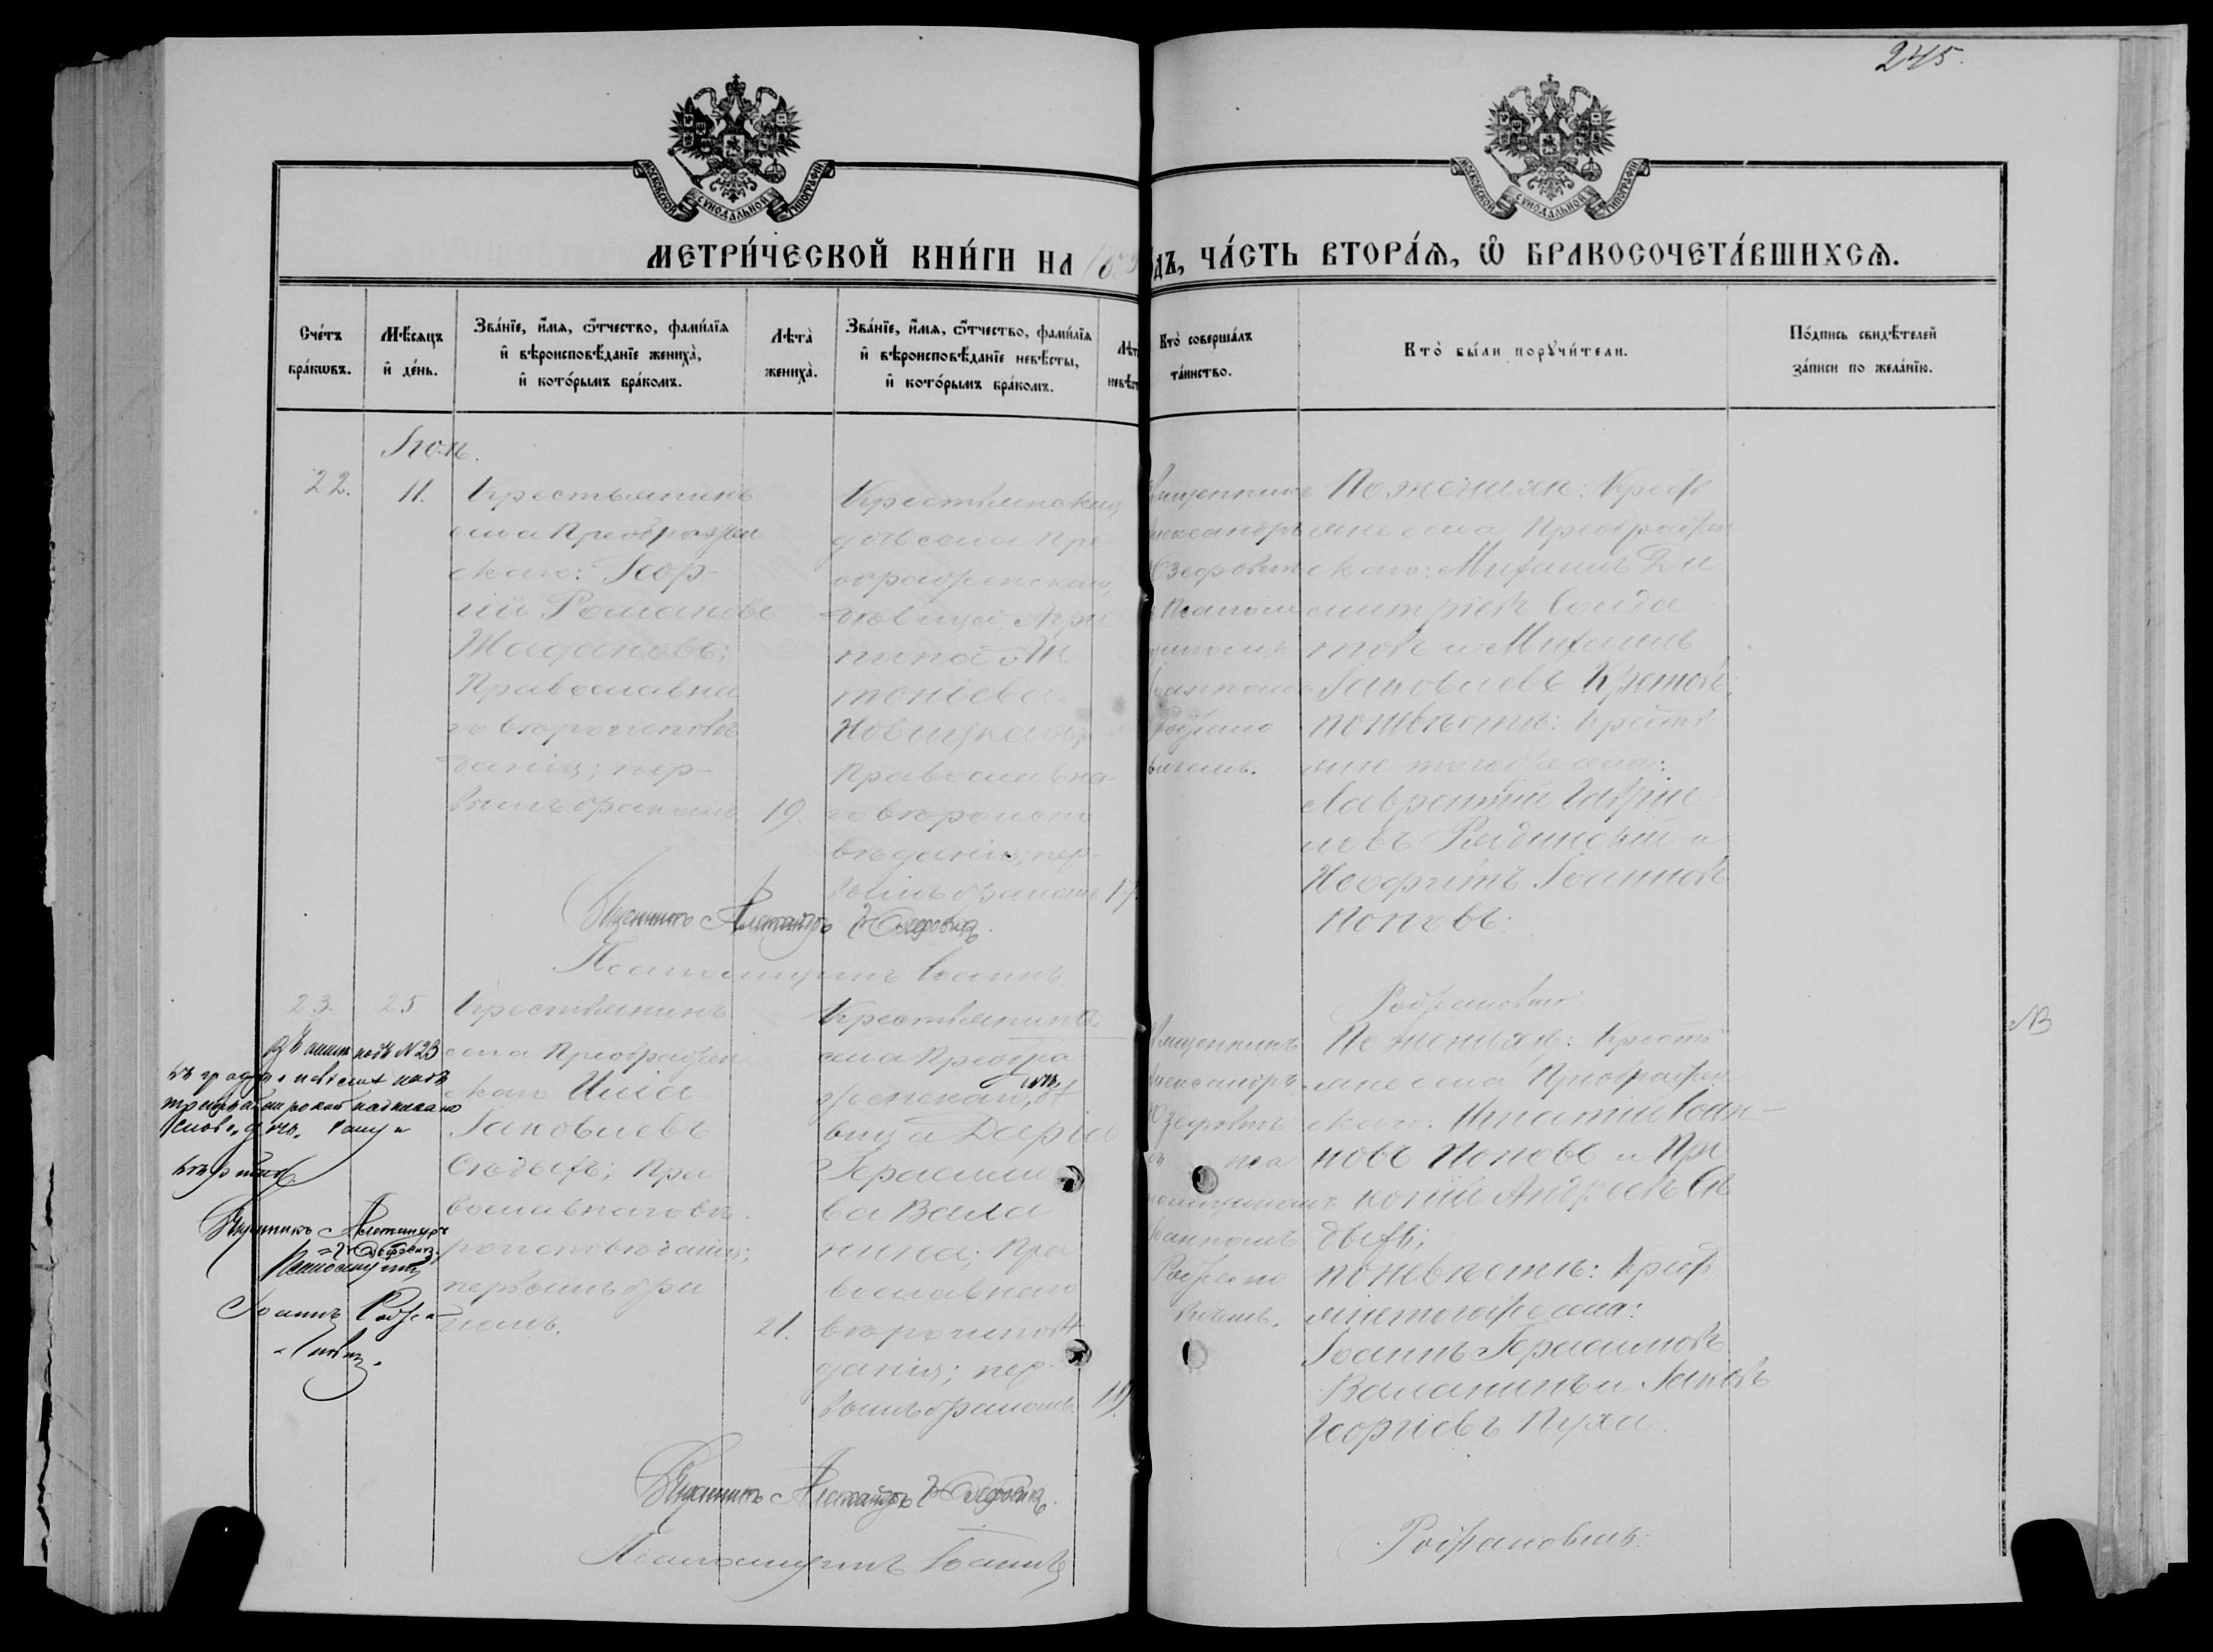 245.
МОСКОВСКОЙ СѴНОДАЛЬНОЙ ТИПОГРАФІИ
МОСКОВСКОЙ СѴНОДАЛЬНОЙ ТИПОГРАФІИ
МЕТРИ́ЧЕСКОЙ КНИ́ГИ НА
дъ, ЧА́СТЬ ВТОРА́Ѧ, Ѽ БРАКОСОЧЕТА́ВШИХСѦ.
Сче́тъ
бра́кѡвъ.
Мѣ́сѧцъ
и҆ де́нь.
Зва́нїе, и҆́мѧ, ѻ҆́тчество, фами́лїѧ
и҆ вѣроисповѣ́данїе жениха̀,
и҆ кото́рымъ бра́комъ.
Лѣта̀
жениха̀.
Зва́нїе, и҆́мѧ, ѻ҆́тчество, фами́лїѧ
и҆ вѣроисповѣ́данїе невѣ́сты,
и҆ кото́рымъ бра́комъ.
Лѣт
невѣст
Кто̀ соверша́лъ
та́инство.
Кто̀ бы́ли порꙋчи́тели.
По́дпись свидѣ́телей
за́писи по жела́нїю.
22.
11.
Крестьянинъ
села Преображен
скаго: Геор-
гій Романовъ
Жадановъ;
Православна
го вѣроисповѣ
данія; пер-
вымъ бракомъ
19.
Крестьянская
дочь села Пре-
ображенскаго,
дѣвица, Агри
пина
Новицкая;
Православна-
го вѣроиспо
вѣданія; пер-
вымъ бракомъ
17.
Священникъ
Александръ
Юзефовичъ
Псалом
щикомъ
Іоанномъ
Рожано
вичемъ.
По женихѣ: Крест
яне села Преображен
скаго: Михаилъ Ди
митріевъ Солда
товъ и Михаилъ
Іаковлевъ
по невѣстѣ: Крестъ
яне того же села:
Лаврентій Гаврии
ловъ и
Неофитъ Іоанновъ
Поповъ.
Священникъ Александръ Юзефовичъ.
Псаломщикъ Іоаннъ
Рожановичъ
23.
25
Крестьянинъ
села Преображен
скаго Илія
Іаковлевъ
Сѣдыхъ; Пра
вославнаго вѣ-
роисповѣданія;
первымъ бра
комъ.
21.
Крестьянина
села Преобра
женскаго, дочь, дѣ
вица Дарья
Герасимо
ва Вала
нина; Пра
вославнаго
вѣроисповѣ
данія; пер-
вымъ бракомъ.
19.
Священникъ
Александръ
Юзефовичъ
пса
ломщикомъ
Іоанномъ
Рожано
вичемъ.
По женихѣ: Крестъ
яне села Преображен
скаго: Игнатій Іоан-
новъ Поповъ и Про
копій Андреевъ Сѣ
дыхъ;
по невѣстѣ: Крест
яне того же села:
Іоаннъ Герасимовъ
Валанинъ и Іаковъ
Георгіевъ Пуха.
NB
подъ № 23
Священникъ Александръ
Юзефовичъ.
Псаломщикъ
Іоаннъ Рожа-
новичъ.
Священникъ Александръ Юзефовичъ.
Псаломщикъ Іоаннъ
Рожановичъ.